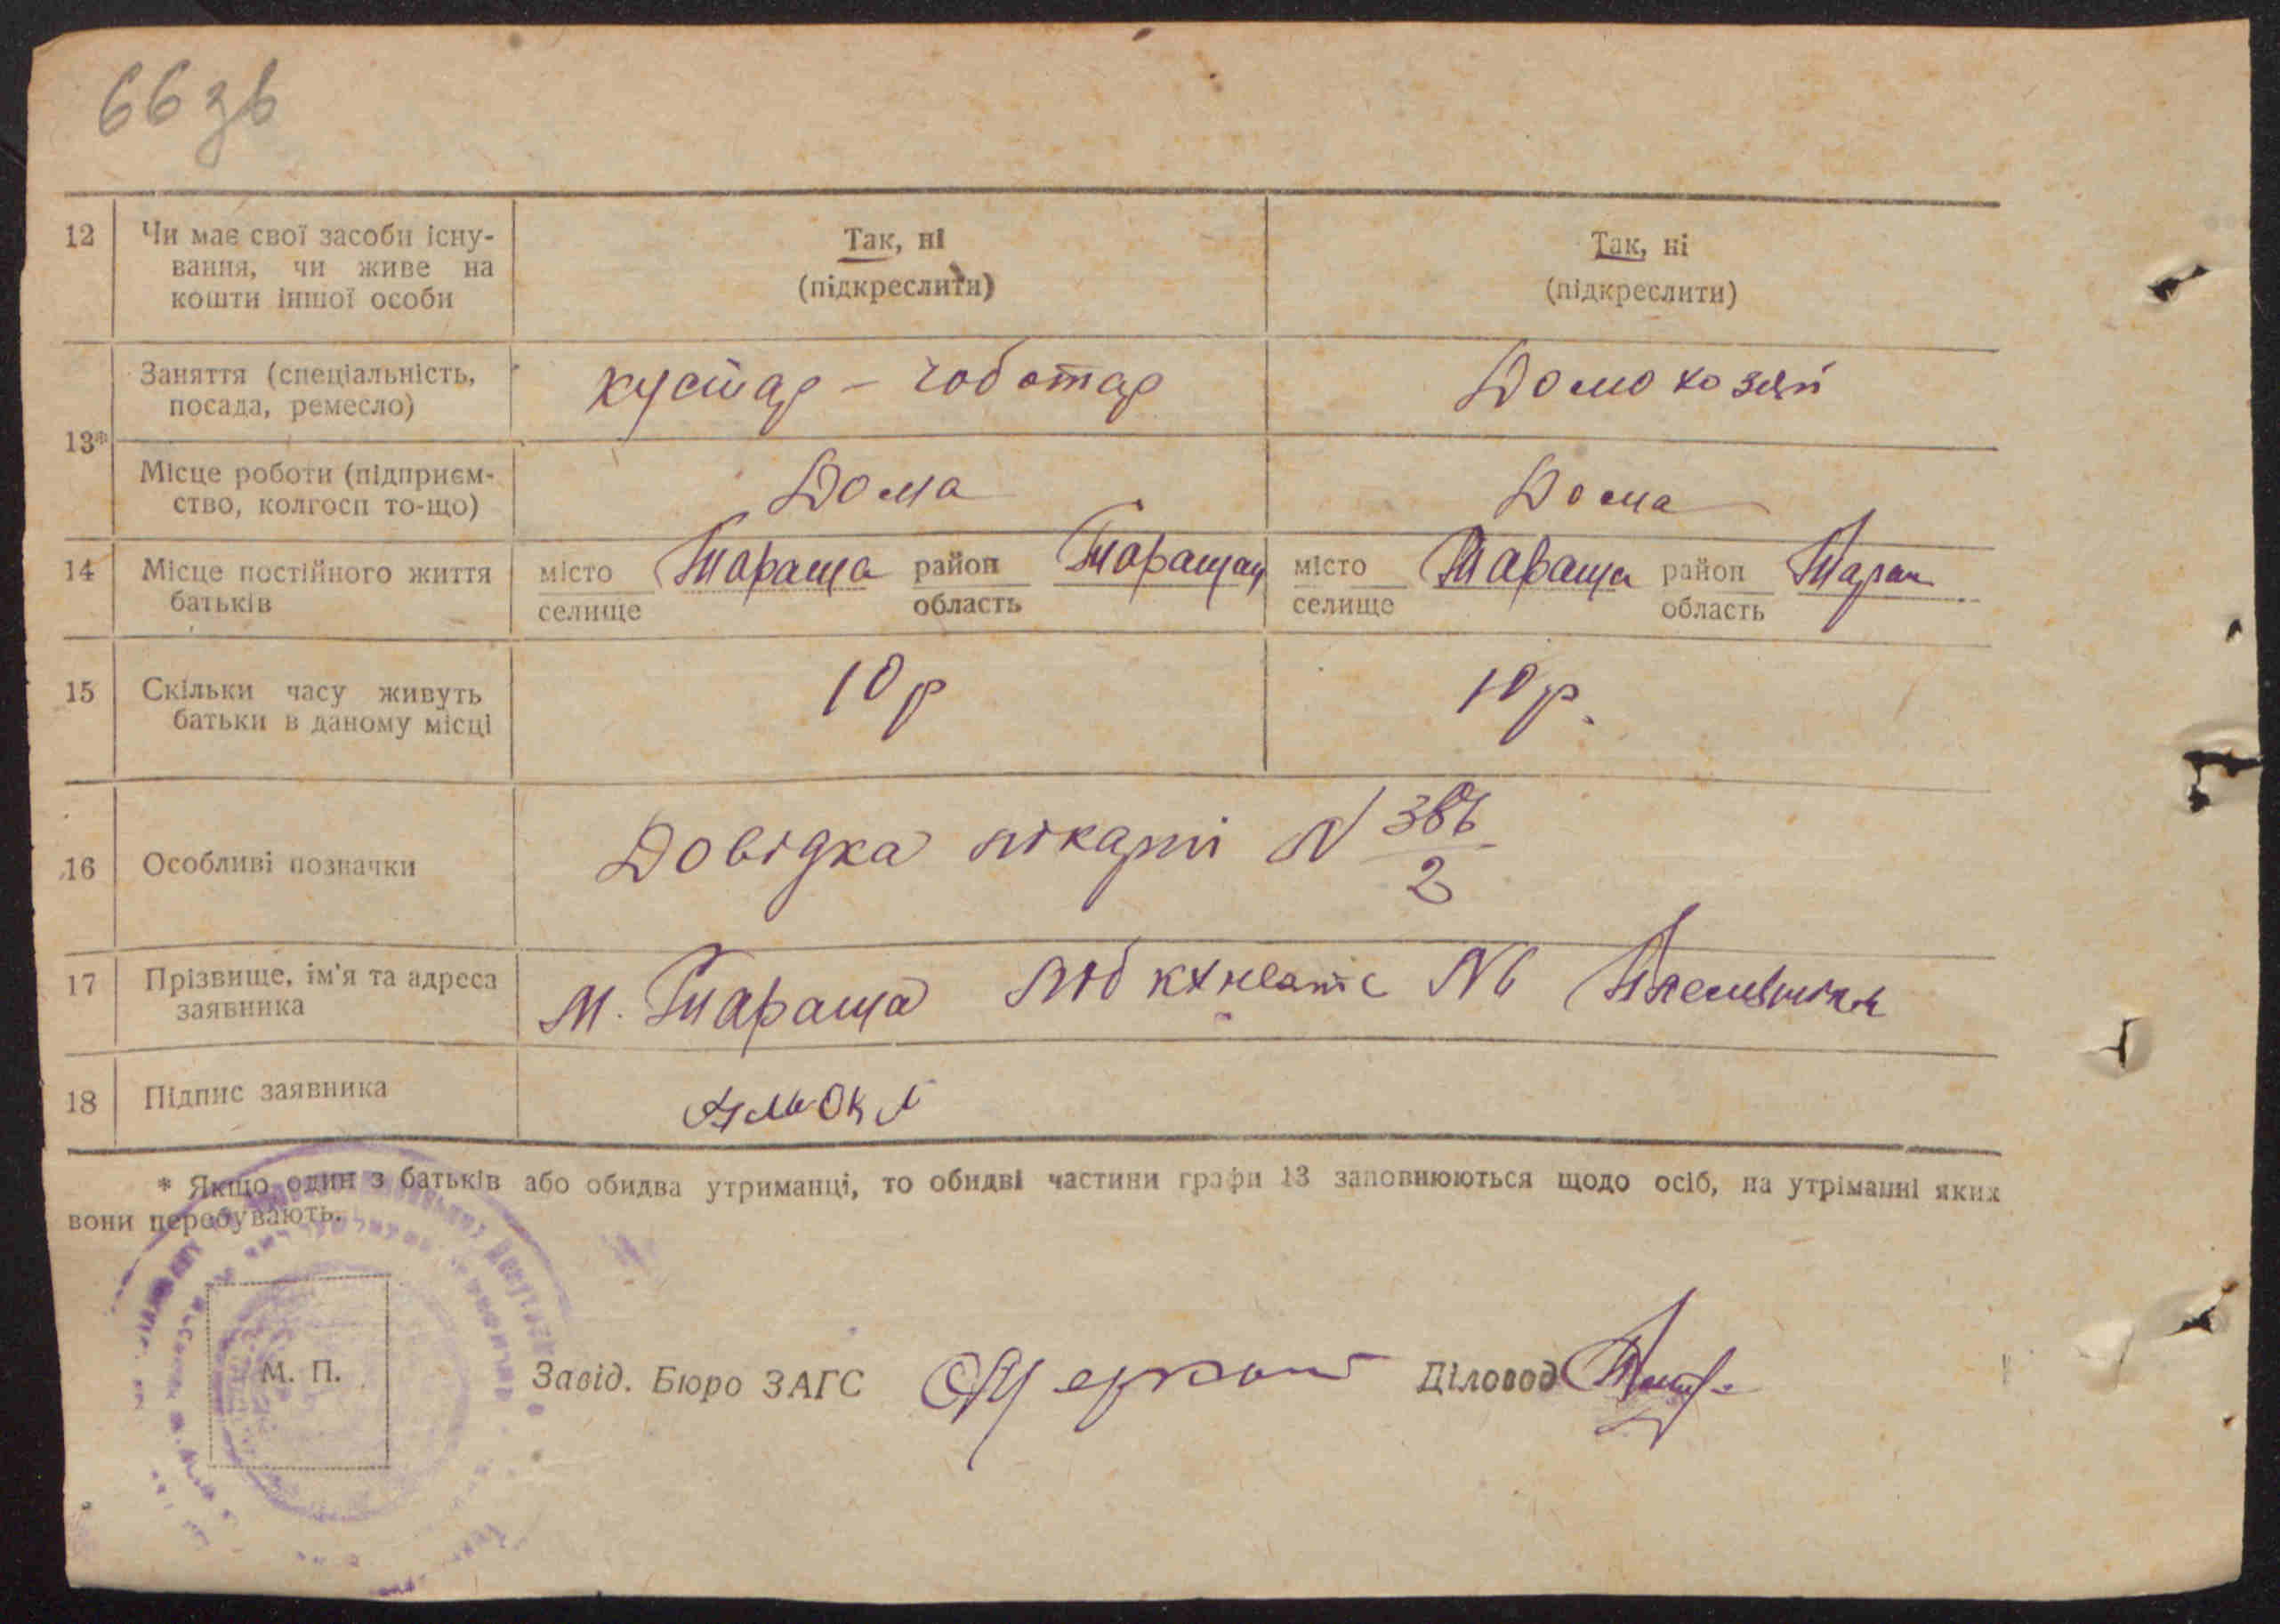 66 зв
12 Чи має свої засоби існу- Так, ні Так, ні
вання, чи живе на (підкреслити) (підкреслити)
кошти іншої особи
13* Заняття (спеціальність, кустар – чоботар Домохозяй
посада, ремесло)
Місце роботи (підприєм- Дома Дома
ство, колгосп то-що)
14 Місце постійного життя місто Тараща район Таращан місто Тараща район Таращ
батьків селище область селище область
15 Скільки часу живуть 10 р 10 р.
батьки в даному місці
16 Особливі позначки Довідка лікарні N
2
17 Прізвище, ім'я та адреса м. Тараща
заявника
18 Підпис заявника
* Якщо один з батьків або обидва утриманці, то обидві частини графи 13 заповнюються щодо осіб, на утріманні яких
вони перебувають.
М. П. Завід. Бюро ЗАГС Діловод